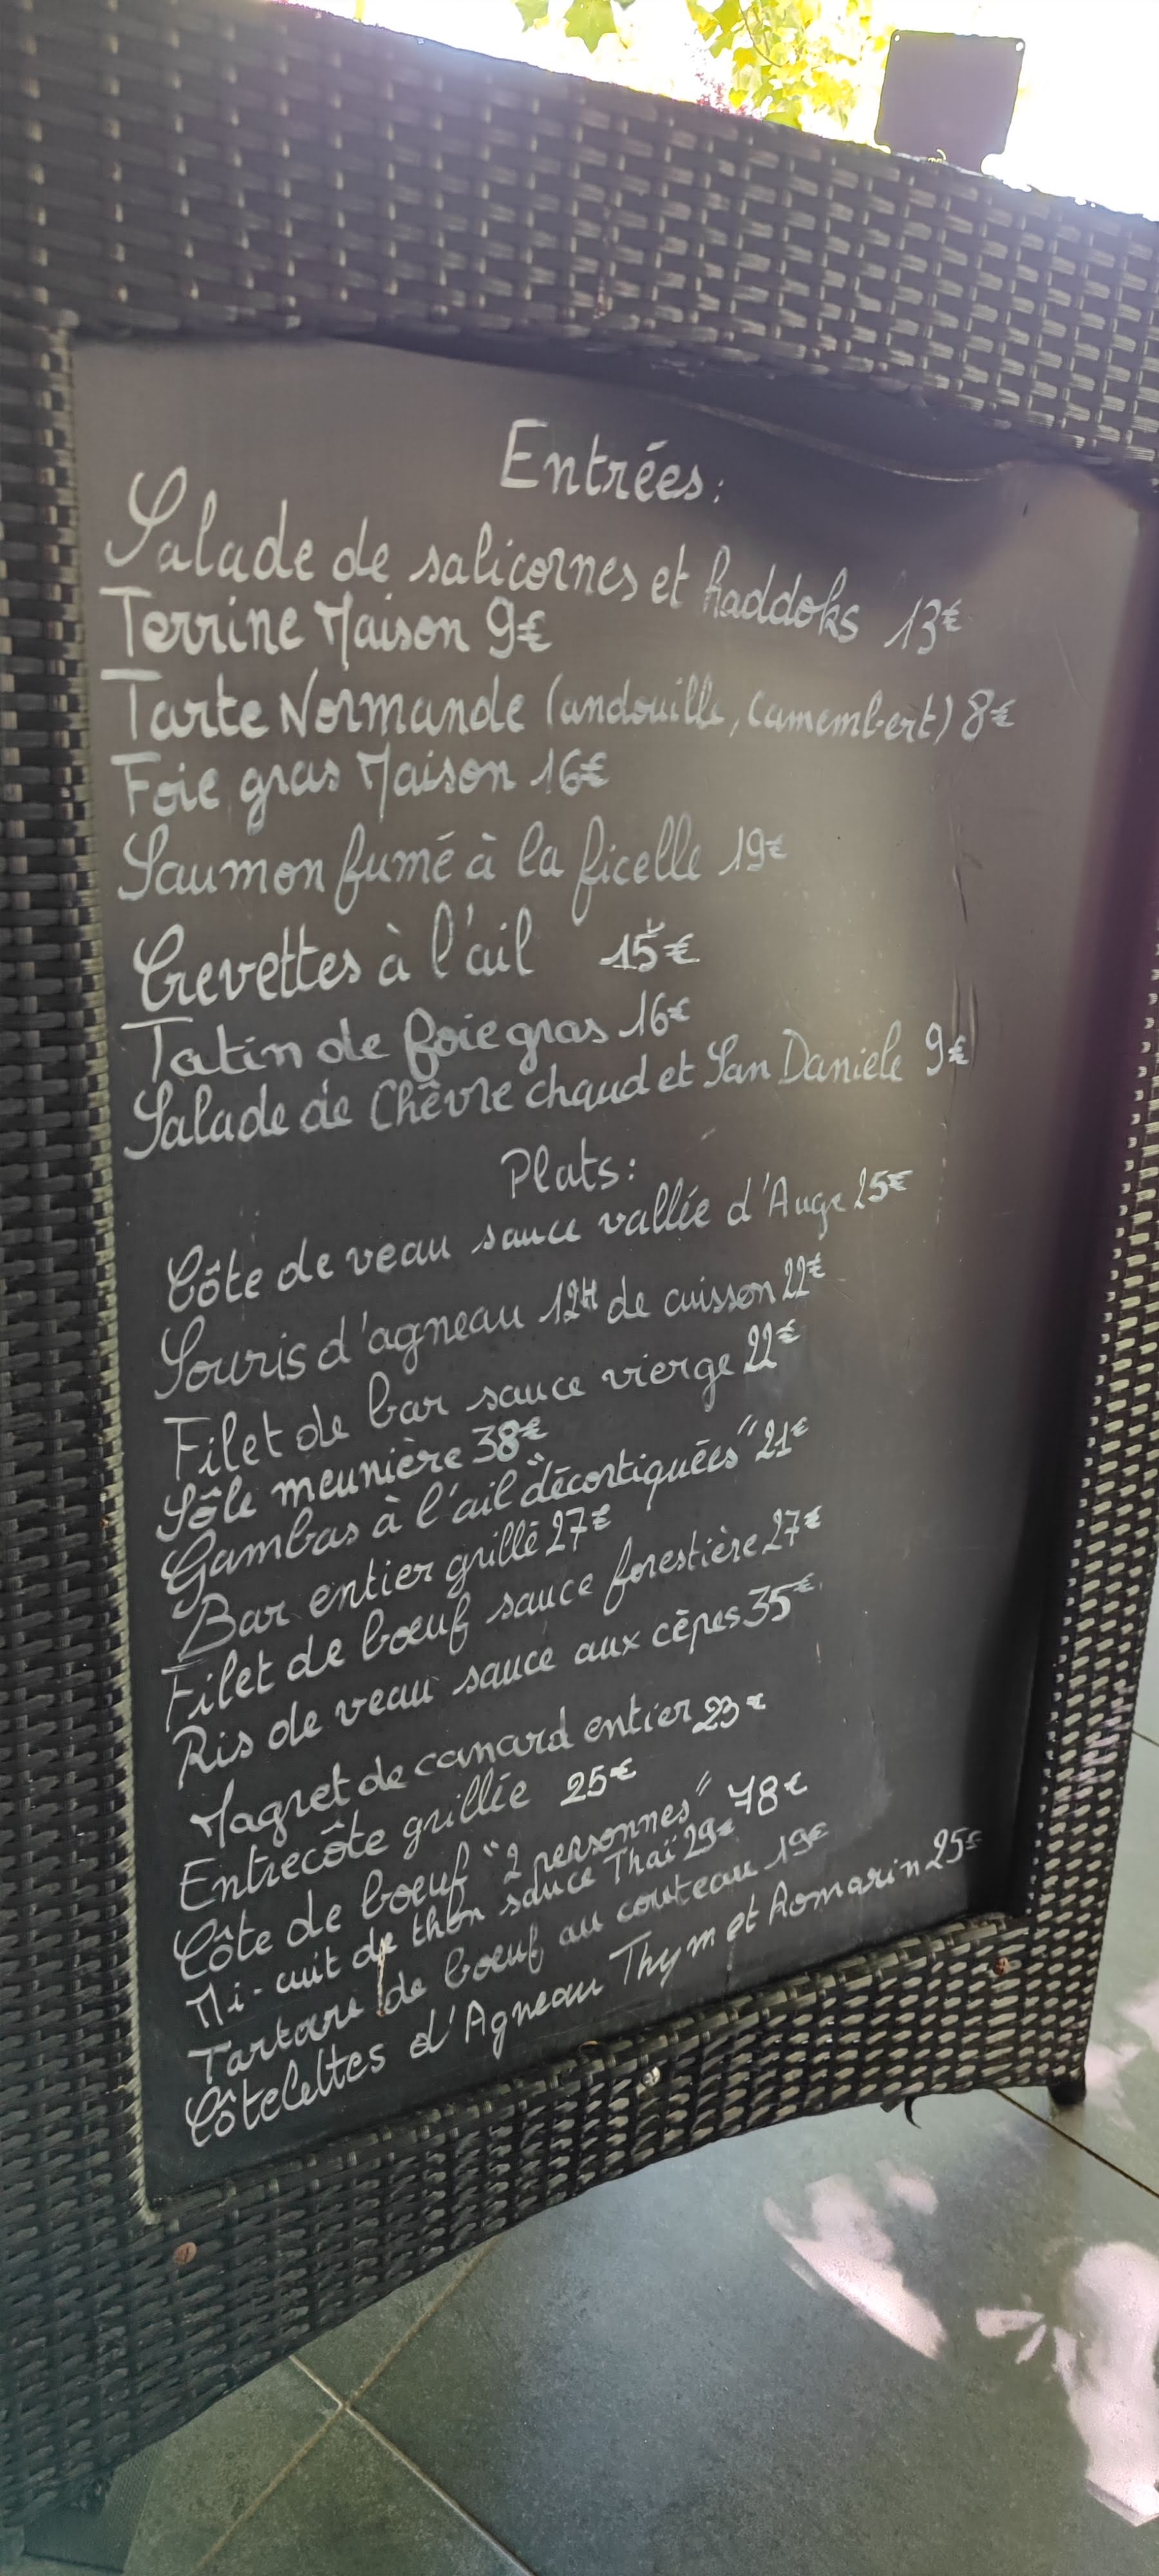 Entrées:
Salade de salicornes et haddoks 13€
Terrine Maison 9€
Tarte Normande (andouille, camembert) 8€
Foie gras Maison 16€
Saumon fumé à la ficelle 19€
Crevettes à l'ail 15€
Tatin de foie gras 16€
Salade de Chêvre chaud et San Daniele 9€
Plats:
Côte de veau sauce vallée d'Auge 25€
Souris d'agneau 12H de cuisson 22€
Filet de bar sauce vierge 22€
Sôle meunière 38€
Gambas à l'ail "décortiquées" 21€
Bar entier grillé 27€
Filet de boeuf sauce forestière 27€
Ris de veau sauce aux cêpes 35€
Magret de canard entier 23€
Entrecôte grillée 25€
Côte de boeuf "2 personnes" 78€
Mi-cuit de thon sauce Thaï 29€
Tartare de boeuf au couteau 19€
Côtelettes d'Agneau Thym et Romarin 25€